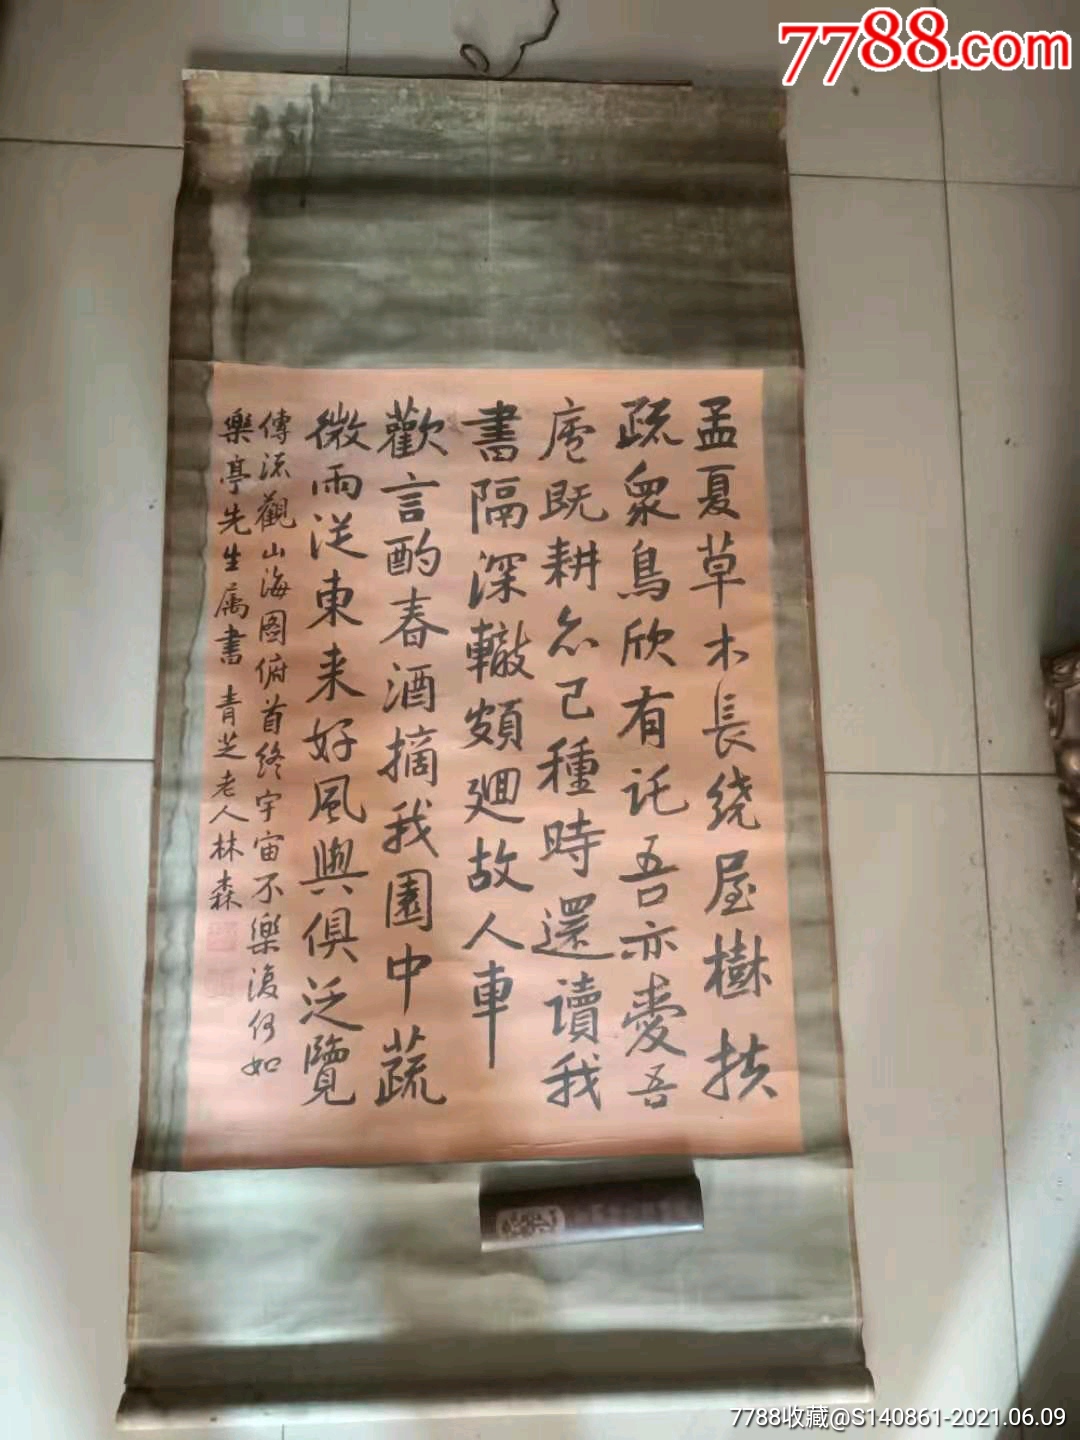 7788.com
孟夏草木長绕屋樹扶
疏衆鳥欣有託吾亦愛吾
廬既耕亦已種時還讀我
書隔深轍頗廻故人車
歡言酌春酒摘我園中蔬
微雨従東来好風與俱泛覽
傳流觀山海圖俯首終宇宙不樂復何如
樂亭先生属書 青芝老人林森
7788收藏@S140861-2021.06.09